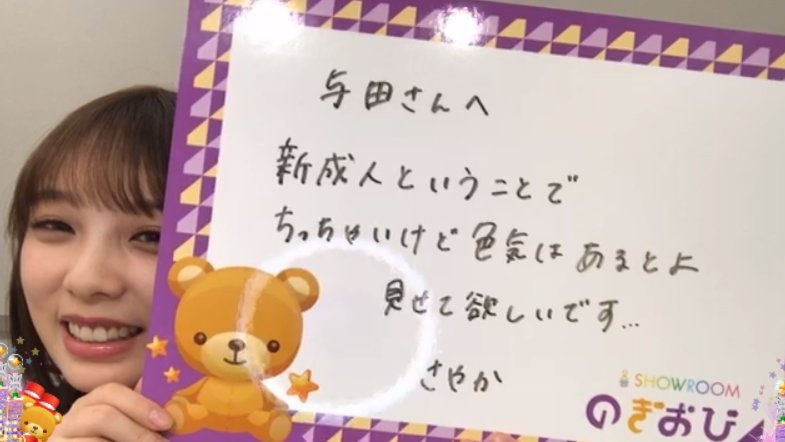 与田さんへ
新成人ということで
ちっちゃいけど色気はあるとよ
見せて欲しいです...
さやか
SHOWROOM
のぎおび